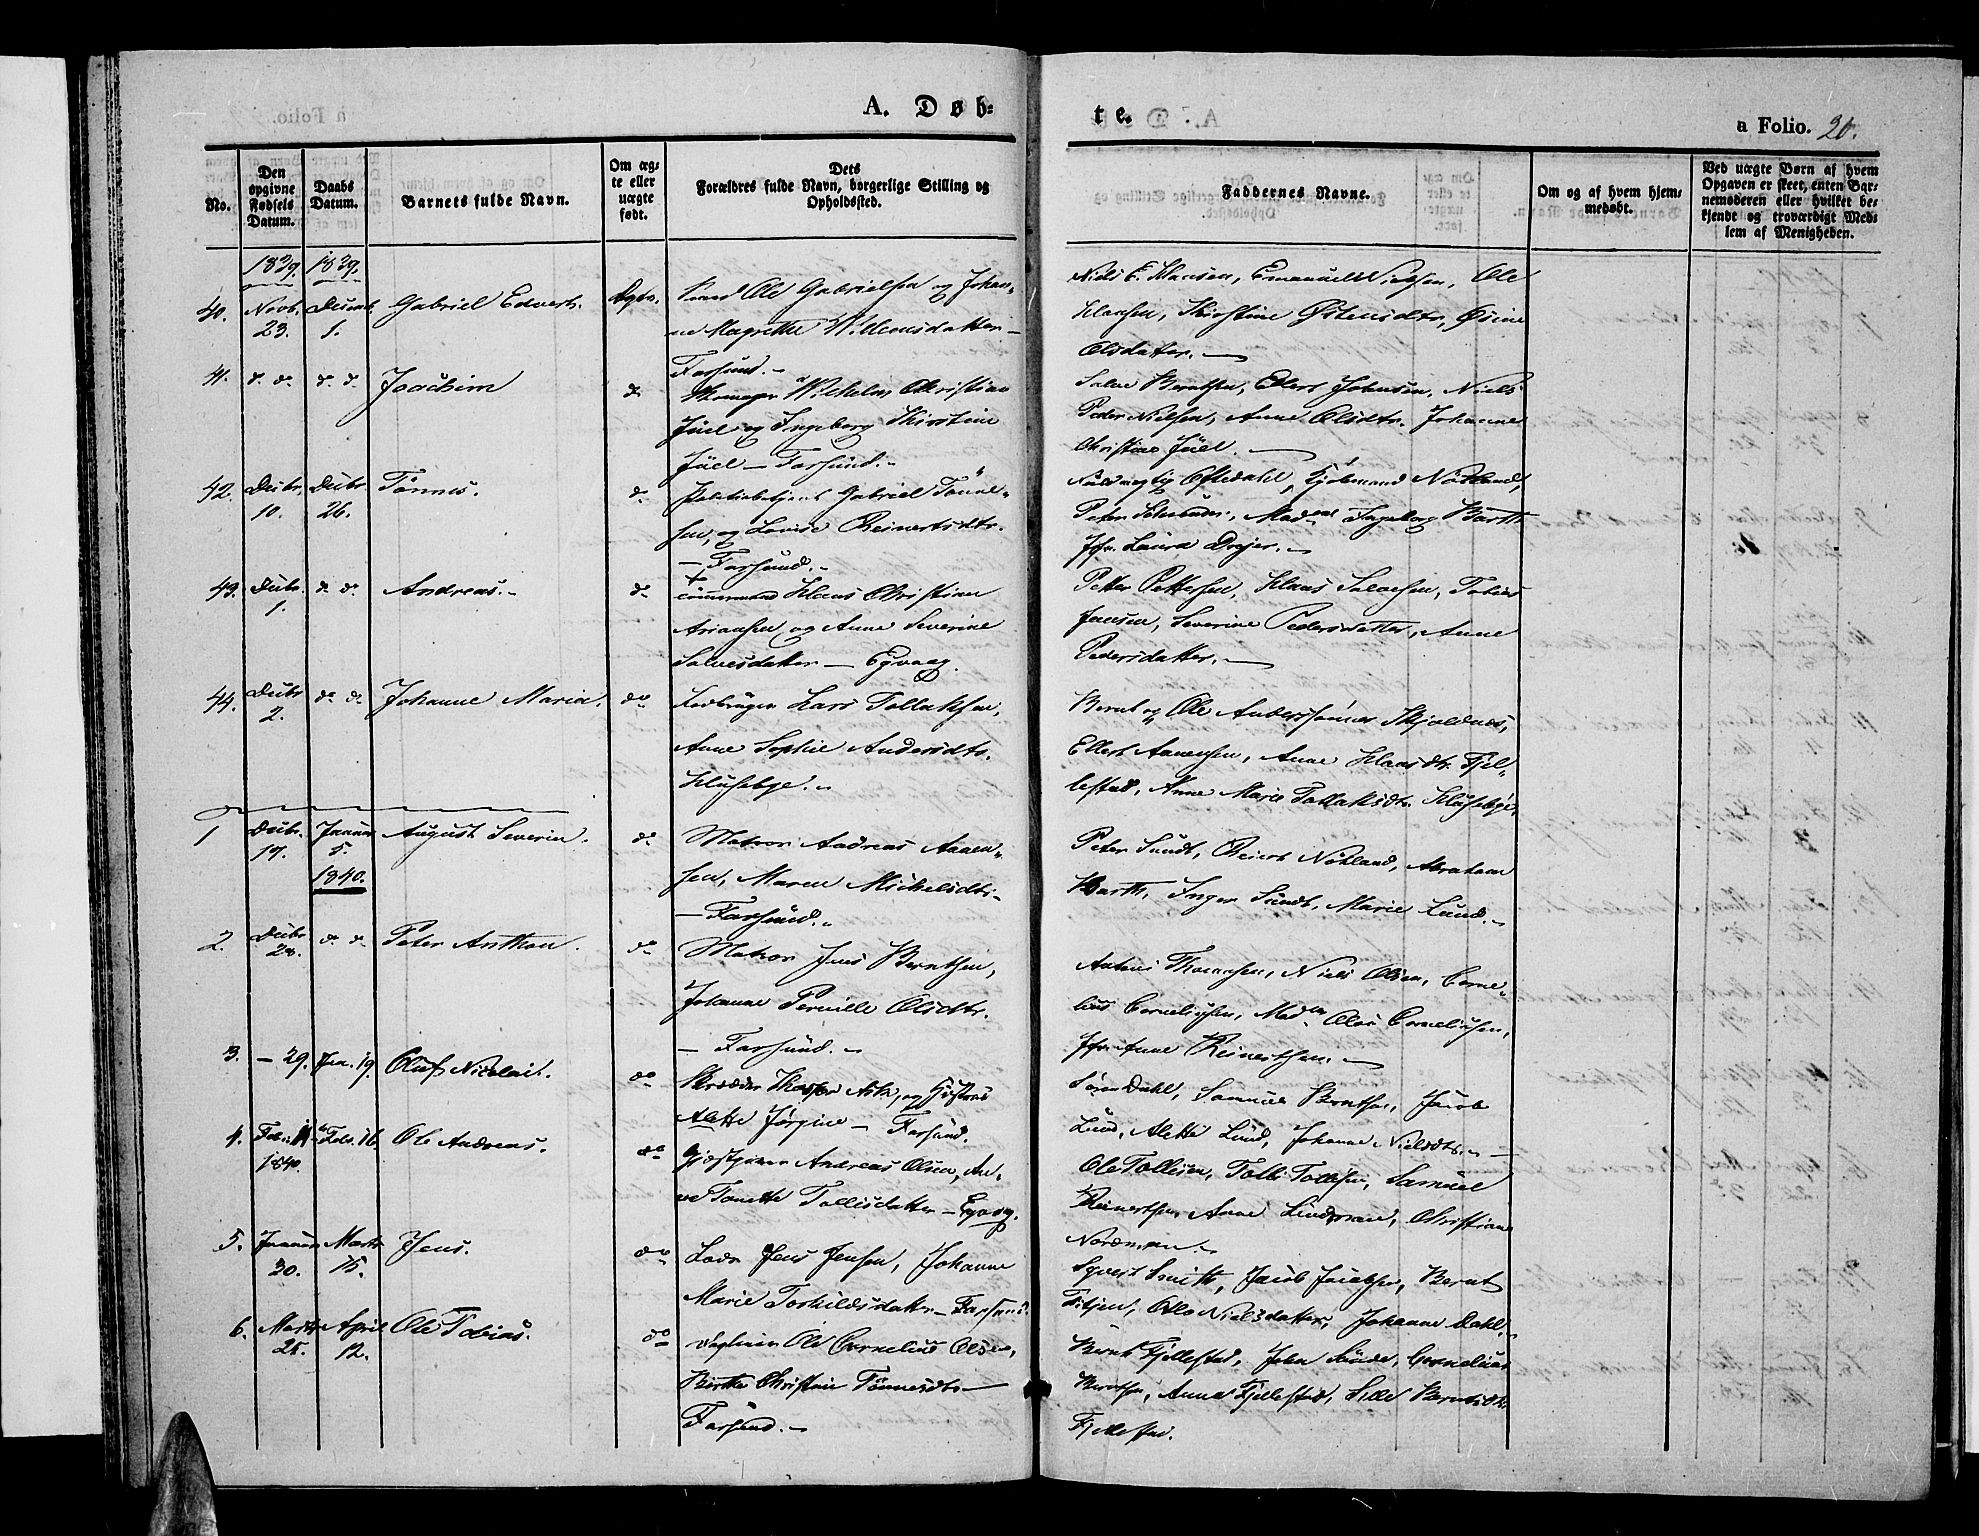 A. Døb=
te.
a Folio. 20.
No.
Den opgivne Fødsels Datum.
Daabs Datum.
Barnets fulde Navn.
Om æg=
te eller
uægte
født.
Dets
Forældres fulde Navn, borgerlige Stilling og
Opholdssted.
Faddernes Navne.
Om og af hvem hjem=
medøbt.
Ved uægte Børn af hvem
Opgaven er skeet, enten Bar=
nemoderen eller hvilket be=
kjendt og troværdigt Med=
lem af Menigheden.
1839. 1839.
40. Novb. 23. Decemb. 1. Gabriel Edvert. Ægte. Ole Gabrielsen og Johan-
ne Magrethe Willumsdatter -
Farsund. -
Niels E. Hansen, Emanuel Nielsen, Ole
Klausen, Kirstine Østensdtr, Øsine
Olsdatter. -
41. d. do. d. d. Joachim d. Skomager Wilhelm Christian
Jüel og Ingeborg Kirstine
Jüel - Farsund. -
Salve Berntsen, Edvert Johnsen, Niels
Peder Nielsen, Anne Olsdtr. Johanne
Christine Jüel. -
42. Decbr. 10. Decbr. 26. Tönnes. d. Politiebetjent Gabriel Tönne-
sen, og Lovise Reinertsdtr.
- Farsund. -
Oftedahl, Kjøbmand Nötland,
Peter, Madme Ingeborg Barth
Jfr. Laura Drejer. -
43. Decbr. 1. d. d. Andreas. - d. Tömmermand Klaus Christian
Ariansen og Anne Severine
Salvesdatter - Egvaag.
Petter Pettersen, Klaus Salvesen, Tobias
Jansen, Severine Pedersdatter, Anne
Pedersdatter. -
44. Decbr. 2. d. d. Johanne Maria. do Jordbruger Lars Tollaksen,
Anne Sophie Andersdtr.
Klüsebye. -
Bernt og Ole Anderssönner Skjoldnes,
Ellert Aanensen, Anne Klausdtr. Fjel-
lestad, Anne Marie Tollaksdtr. Klüsebye,
1 Decbr. 17. Januar 5. 1840. August Severin. d. Matros Andreas Aanen-
sen, Maren Mickelsdtr. -
- Farsund. -
Peter Sundt, Reinert Nötland, Abraham
Barth, Inger Sundt, Marie Lund. -
2. Decbr. 28. d. d. Peter Anthon. do Matros Jens Berntsen,
Johanne Pernille Olsdtr.
- Farsund. -
Antoni Thomesen, Niels Olsen, Corne-
lius Corneliusen, Madme Olava Corneliusen,
Jfr. Anne Reinertsen. -
3. - 29. Jan. 19. Oluf Nicolai. do Skræder Kasper Ask, og Hustrue
Alette Jørgine - Farsund.
Søren Dahl, Samuel Berntsen, Jacob
Lund, Alette Lund, Johanne Nielsdtr. -
4. 1840. Febr. 16. Ole Andreas. do Gjæstgiver Andreas Olsen, An-
ne Tonette Tollisdatter - Egvaag.
Ole Tollisen, Tolli Tollisen, Samuel
Reinertsen, Anne Lindman, Christiane
Nordman. -
5. Januar 30. Marts 15. Jens. do Lods Jens Jensen, Johanne
Marie Torkildsdatter - Farsund.
Syvert Smith, Jacob Jacobsen, Bernt
Fitjen, Nielsdatter, Johanne Dahl. -
6. Marts 25. April 12. Ole Tobias. do Ole Cornelius Olsen,
Birthe Christine Tönnesdtr -
Farsund. -
Bernt Fjellestad, John Sunde, Cornelius
Berntsen, Anna Fjellestad, Sille Berntsdtr.
Fjellestad.